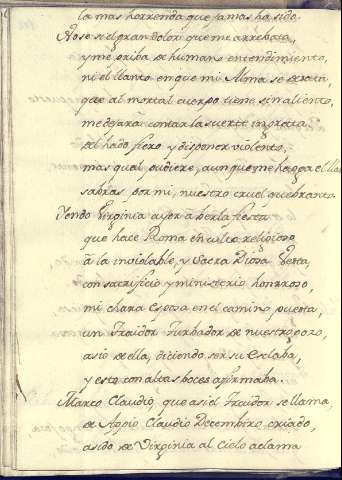 la mas horrenda que jamas ha sido.
No se si el gran dolor que me arrebata,
y me priba de humano entendimiento,
ni el llanto en que mi Alma se desata,
que al mortal cuerpo tiene sin aliento,
me dejará contar la suerte ingrata
del hado fiero y disponer violento,
mas qual pudiere, aunque me haga el llanto
sabras, por mi, nuestro cruel quebranto.
Yendo Virginia ayer a ber la fiesta
que hace Roma en culto religioso
à la inviolable, y Sacra Diosa Vesta,
con sacrificio y ministerio honrroso,
mi chara Esposa en el camino puesta,
un Traidor Turbador de nuestro gozo,
asio de ella, diciendo ser su Esclaba,
y esto con altas boces afirmaba.
Marco Claudio, que asi el Traidor se llama,
de Appio Claudio Decembiro criado,
asido de Virginia al Cielo aclama